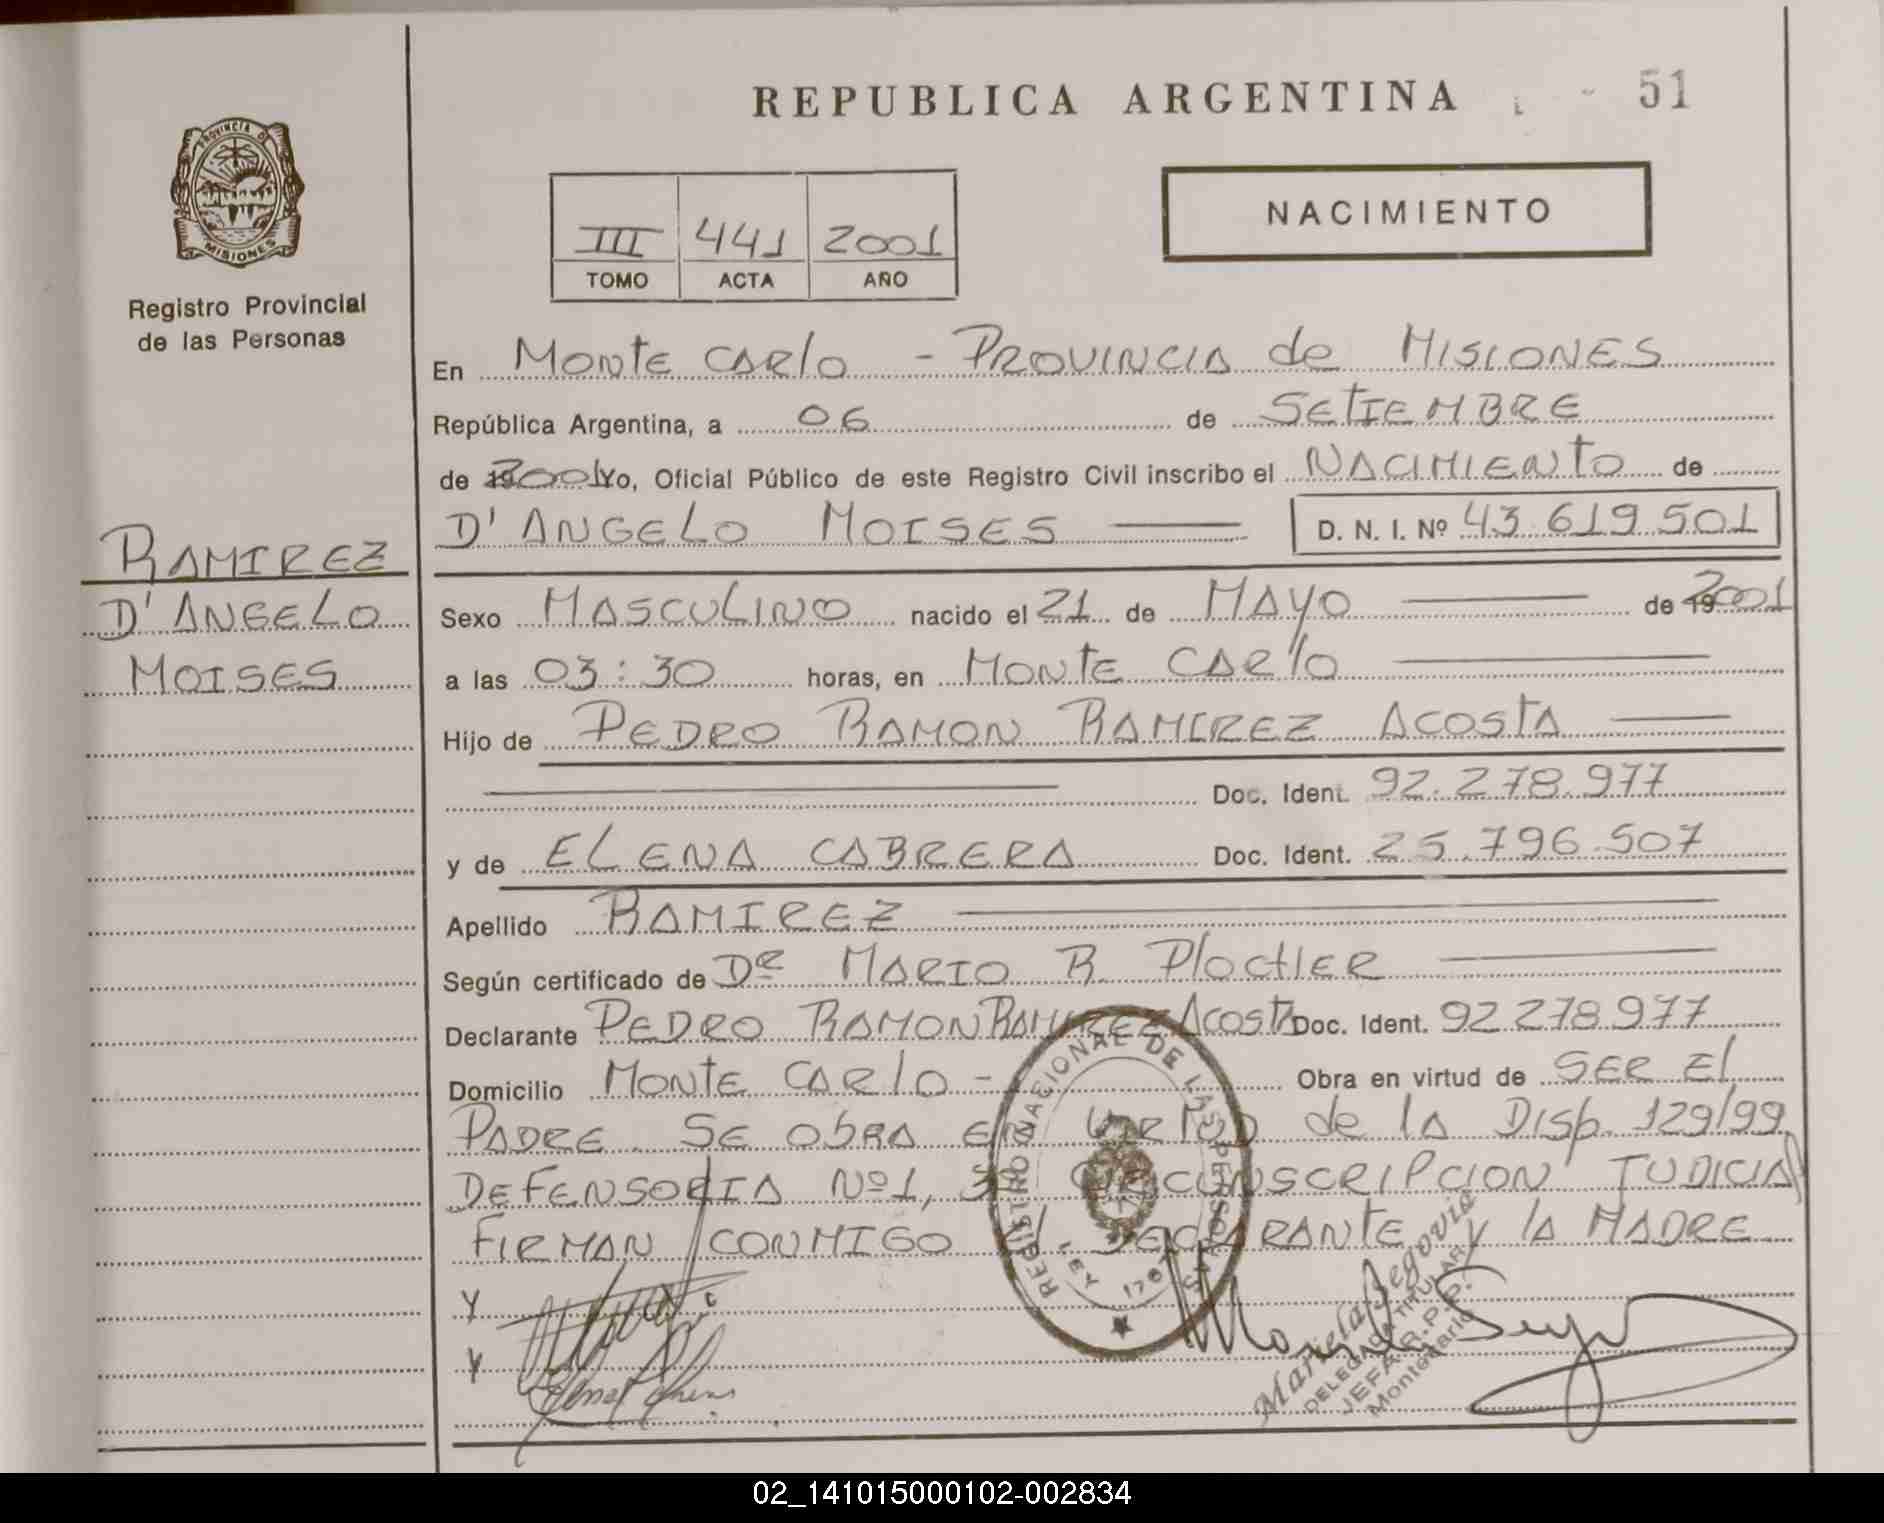 REPUBLICA ARGENTINA
51
PROVINCIA DE MISIONES
Registro Provincial
de las Personas
NACIMIENTO
III 441 2001
TOMO ACTA AÑO
En MONTE CARlO - PROVINCIA de MISIONES
República Argentina, a 06 de SETIEMBRE
de 2001 Yo, Oficial Público de este Registro Civil inscribo el NACIMIENTO de
D'ANGELO MOISES D. N. I. Nº 43.619.501
RAMIREZ
D'ANGELO
MOISES
Sexo MASCULINO nacido el 21 de MAYO de 2001
a las 03:30 horas, en MONTE CARlO
Hijo de PEDRO RAMON RAMIREZ ACOSTA
Doc. Ident. 92.278.977
y de ELENA CABRERA Doc. Ident. 25.796.507
Apellido RAMIREZ
Según certificado de DR MARIO R. 
Declarante PEDRO RAMON RAMIREZ ACOSTA Doc. Ident. 92.278.977
Domicilio MONTE CARlO - Obra en virtud de SER El
PADRE. SE ObRA EN VIRTUD de lA DISp. 129/99
DEFENSORIA Nº1, CIRCUNSCRIPCION JUDICIAl
FIRMAN CONMIGO El DECLARANTE y lA MADRE
REGISTRO NACIONAL DE LAS PERSONAS
LEY
Mariela Segovia
DELEGADA TITULAR
JEFA R.P.P.
Montecarlo
02_141015000102-002834